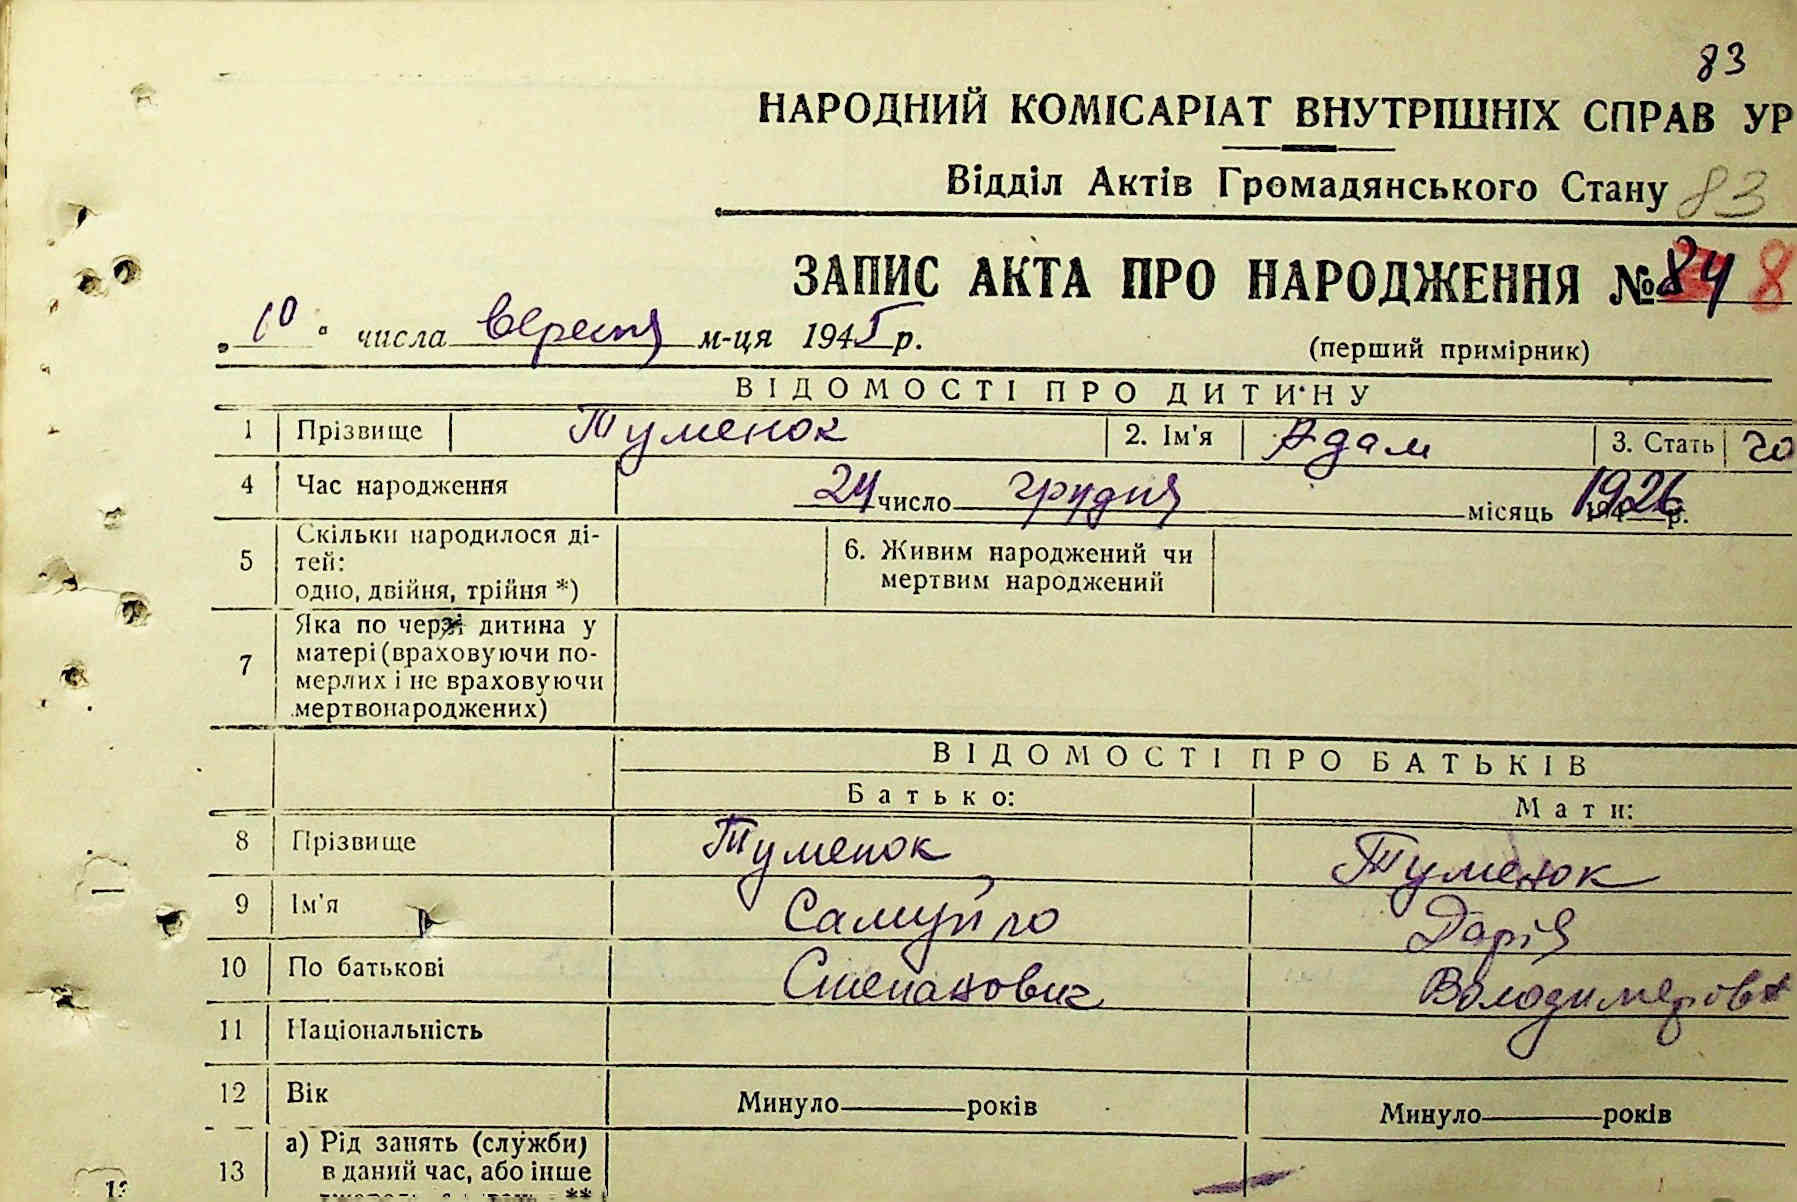 83
НАРОДНИЙ КОМІСАРІАТ ВНУТРІШНІХ СПРАВ УР
Відділ Актів Громадянського Стану 83
ЗАПИС АКТА ПРО НАРОДЖЕННЯ № 84 8
„10“ числа вересня м-ця 1945 р.
(перший примірник)
ВІДОМОСТІ ПРО ДИТИНУ
1 Прізвище Туменок 2. Ім'я Адам 3. Стать чо
4 Час народження 24 число грудня місяць 1926 р.
5 Скільки народилося ді-
тей:
одно, двійня, трійня *)
6. Живим народжений чи
мертвим народжений
7 Яка по черзі дитина у
матері (враховуючи по-
мерлих і не враховуючи
мертвонароджених)
ВІДОМОСТІ ПРО БАТЬКІВ
Батько: Мати:
8 Прізвище Туменок Туменок
9 Ім'я Самуйло Дарія
10 По батькові Степанович Володимирівн
11 Національність
12 Вік Минуло років Минуло років
13 а) Рід занять (служби)
в даний час, або інше